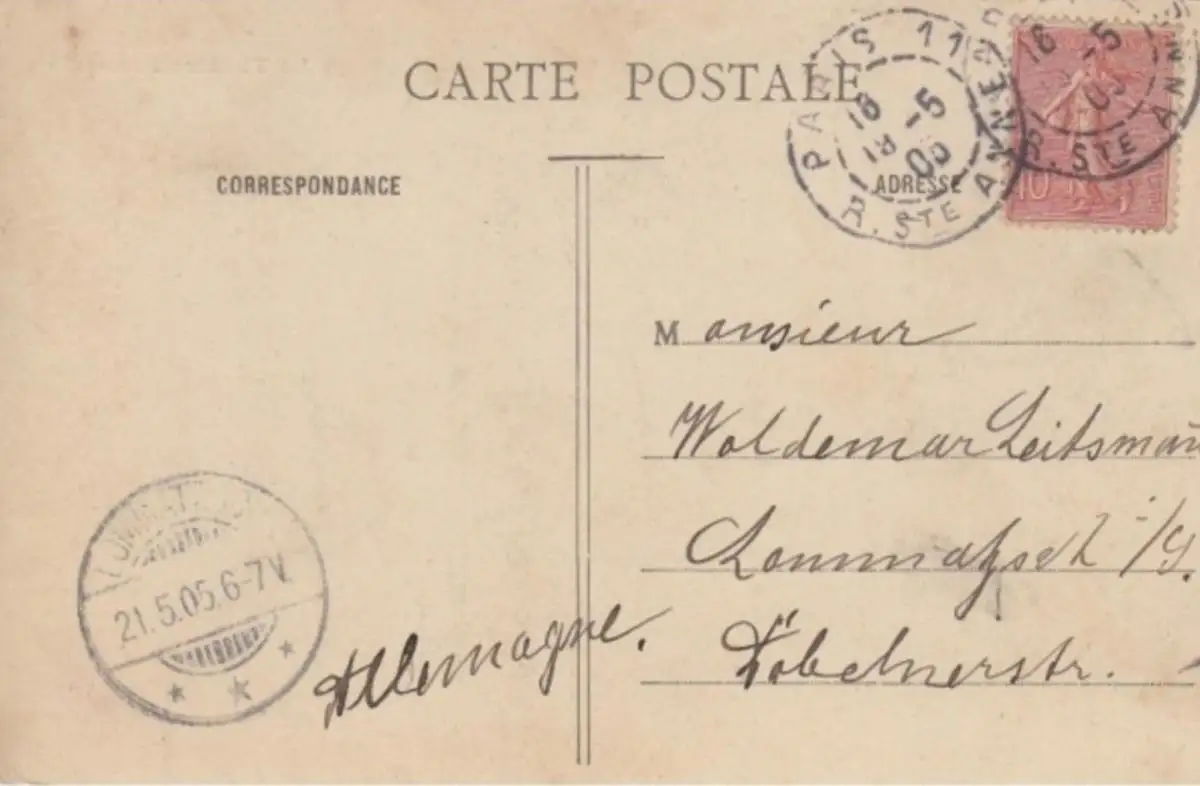 CARTE POSTALE
CORRESPONDANCE
ADRESSE
PARIS 11
18
18 -5
05
R. STE ANNE
18 -5
05
R. STE ANNE
10
Monsieur
Woldemar Leitsman
Lommatzsch i/S.
Döbelnerstr.
Allemagne.
LOMMATZSCH
21.5.05.6-7V.